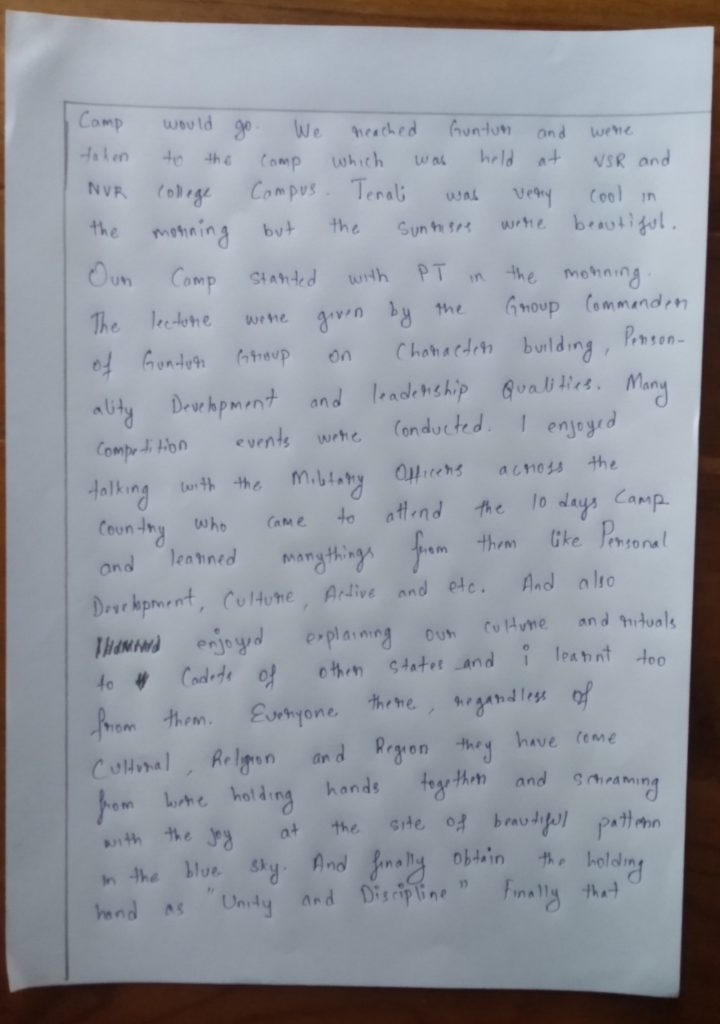 Camp would go. We reached Guntur and were
taken to the Camp which was held at VSR and
NVR College Campus. Tenali was very Cool in
the morning but the Sunrises were beautiful.
Our Camp Started with PT in the morning.
The lecture were given by the Group Commander
of Guntur Group on Character building, Person-
ality Development and leadership Qualities. Many
Competition events were Conducted. I enjoyed
talking with the Military Officers across the
Country who came to attend the 10 days Camp
and learned manythings from them like Personal
Development, Culture, Active and etc. And also
enjoyed explaining our culture and rituals
to Cadets of other States and i learnt too
from them. Everyone there, regardless of
Cultural, Religion and Region they have come
from were holding hands together and screaming
with the joy at the site of beautiful pattern
in the blue sky. And finally Obtain the holding
hand as "Unity and Discipline" Finally that